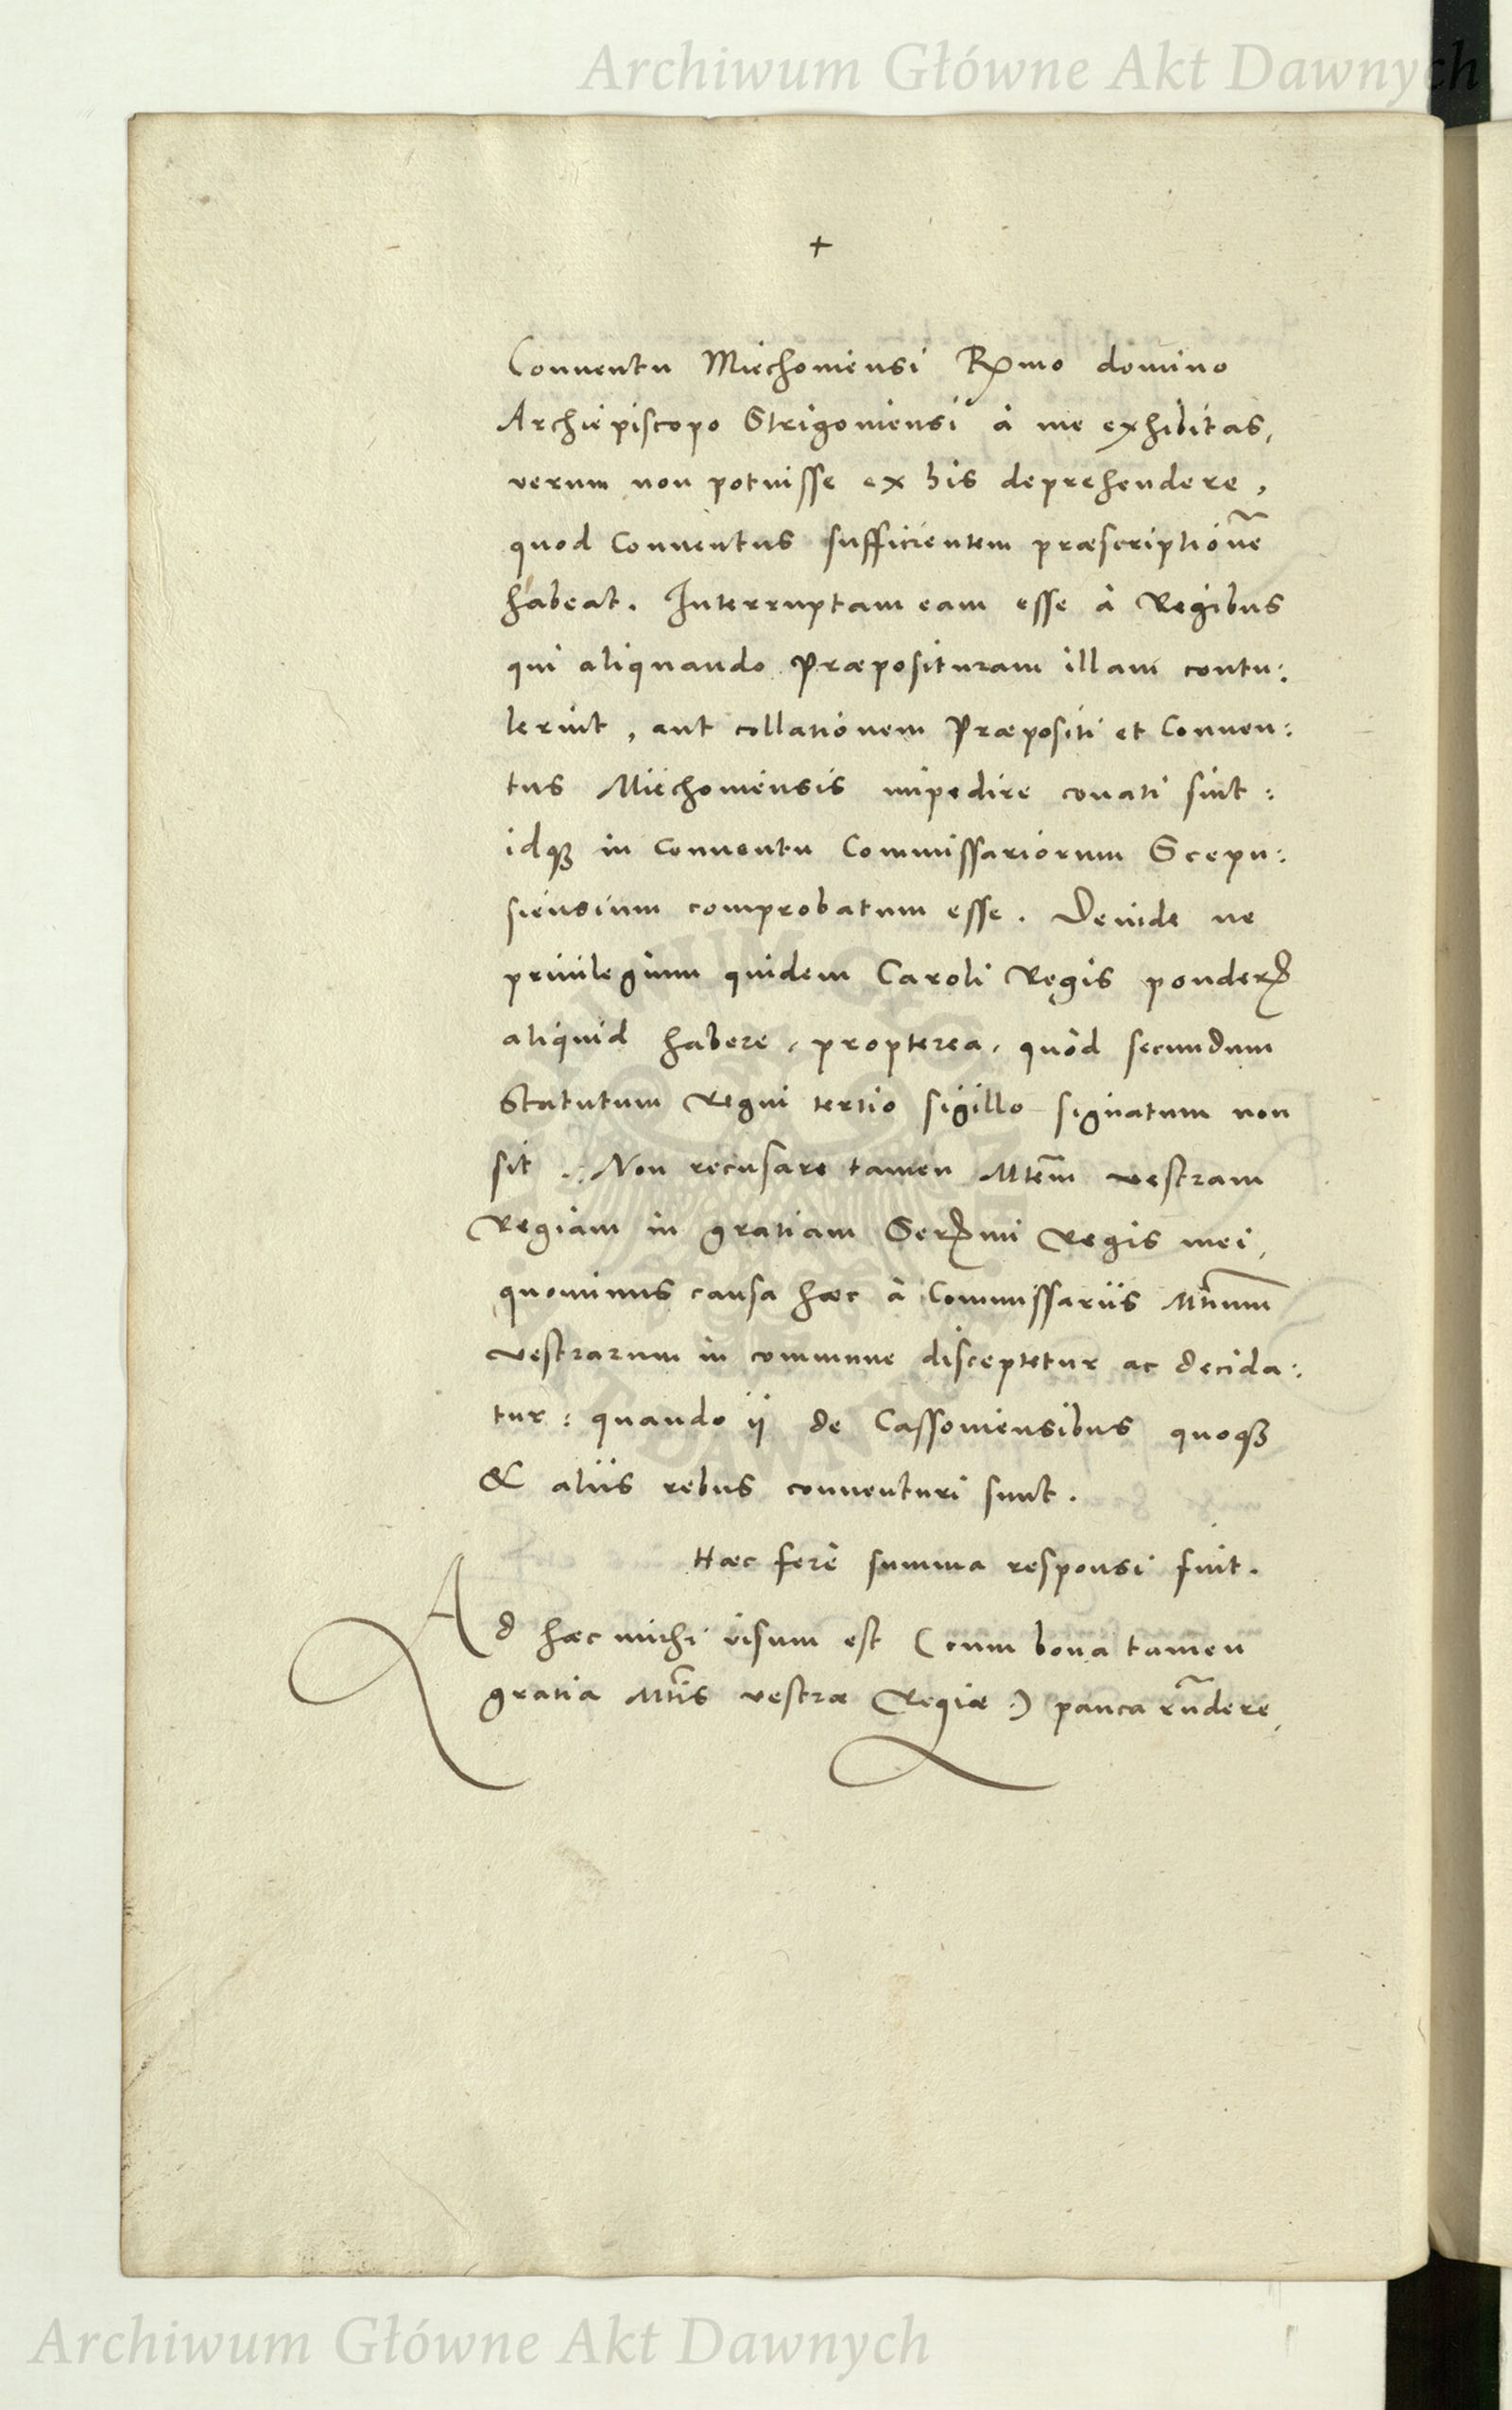 Archiwum Główne Akt Dawnych
+
Conuentu Miechouiensi Rmo domino
Archiepiscopo Strigoniensi à me exhibitas,
verum non potuisse ex his deprehendere,
quod Conuentus sufficientem præscriptionẽ
habeat. Interruptam eam esse à Regibus
qui aliquando Præposituram illam contu:
lerint, aut collationem Præpositi et Conuen:
tus Miechouiensis impedire conati sint:
idqꝫ in conuentu Commissariorum Scepu:
siensium comprobatum esse. Deinde ne
priuilegium quidem Caroli Regis ponderꝭ
aliquid habere, propterea, quòd secundum
Statutum Regni tertio sigillo signatum non
sit. Non recusare tamen Mtem̃ vestram
Regiam in gratiam Serꝭmi Regis mei,
quominus causa hæc à Commissariis Mtnum̃
vestrarum in commune disceptetur ac decida:
tur: quando ij de Cassouiensibus quoqꝫ
& aliis rebus conuenturi sunt.
Hæc ferè summa responsi fuit.
Ad hæc michi visum est (cum bona tamen
gratia Mtĩs vestræ Regiæ) pauca rñdere,
Archiwum Główne Akt Dawnych